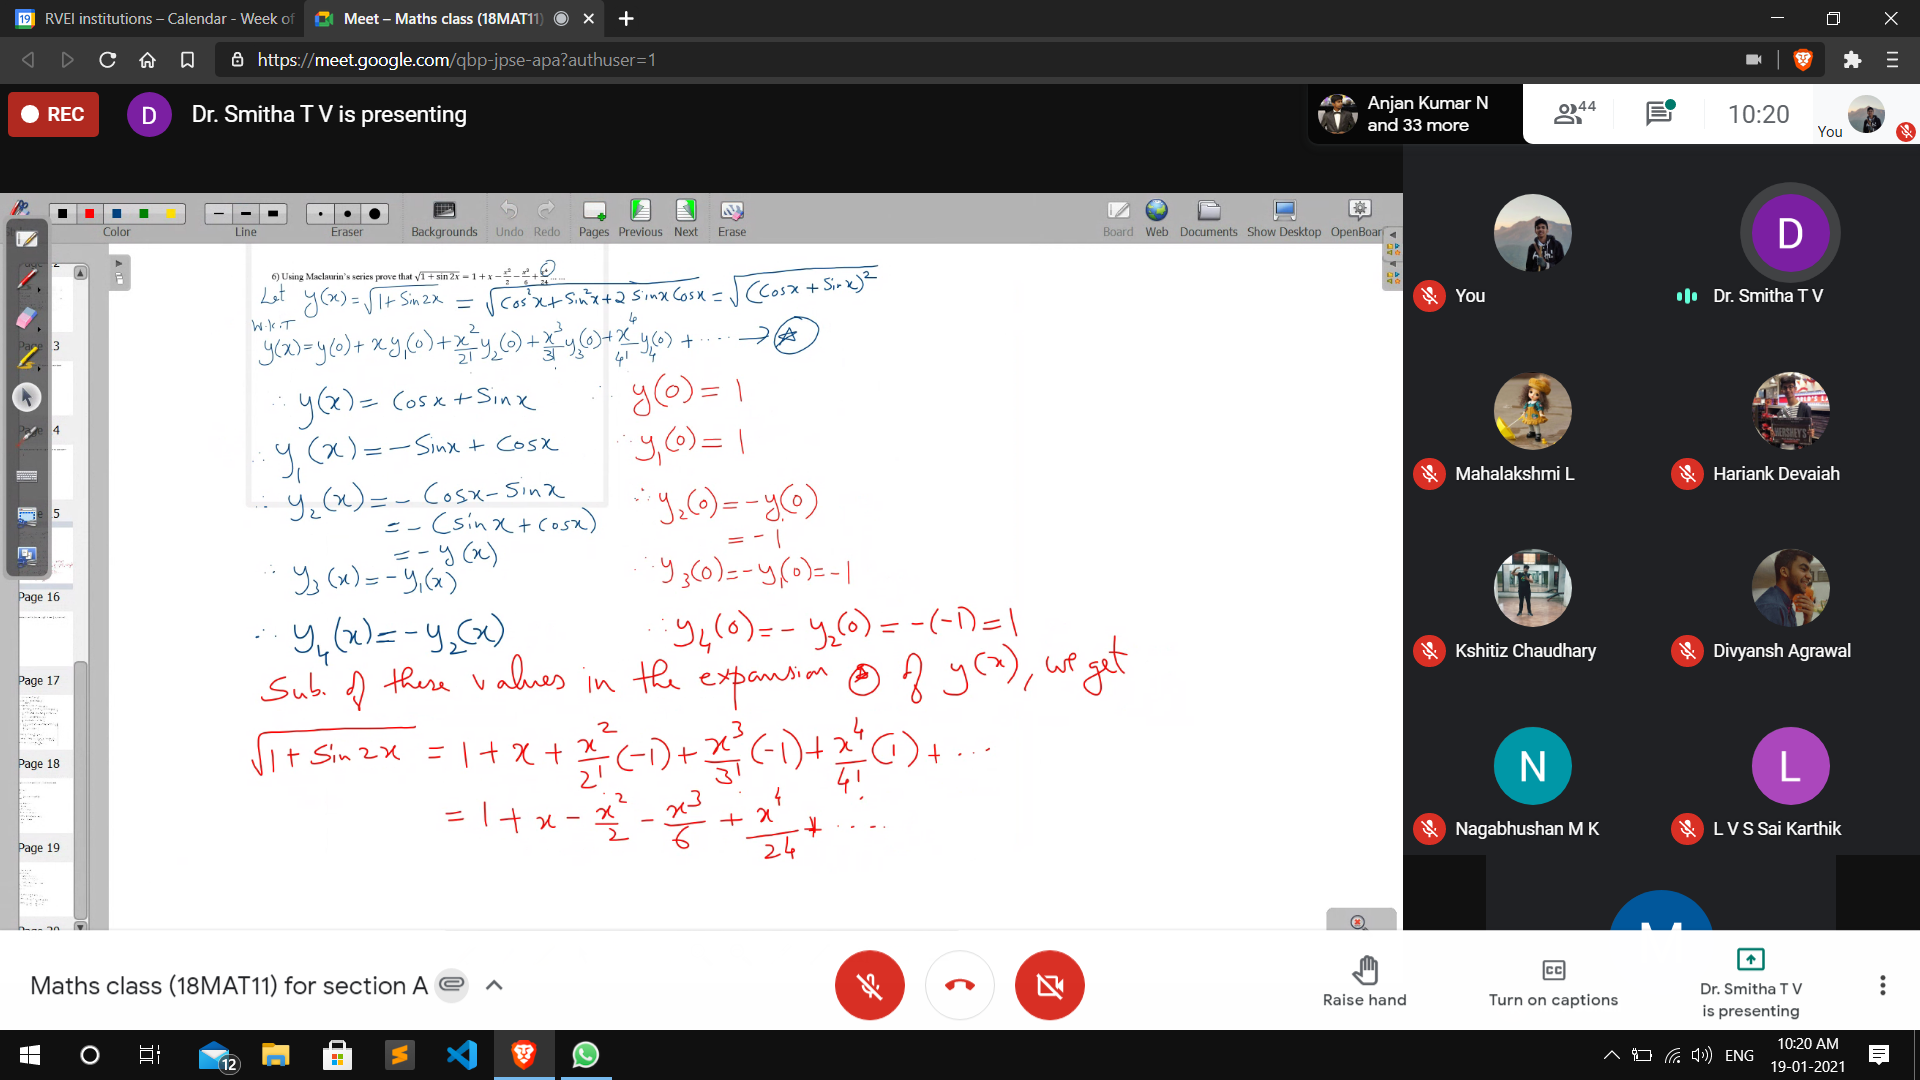 RVEI institutions – Calendar - Week of
Meet – Maths class (18MAT11)
https://meet.google.com/qbp-jpse-apa?authuser=1
REC
D
Dr. Smitha T V is presenting
Anjan Kumar N
and 33 more
44
10:20
You
Color
Line
Eraser
Backgrounds
Undo
Redo
Pages
Previous
Next
Erase
Board
Web
Documents
Show Desktop
OpenBoar
6) Using Maclaurin's series prove that √(1 + sin 2x) = 1 + x − x²/2 − x³/6 + x⁴/24 ......
Let y(x) = √(1+Sin2x) = √(Cos²x + Sin²x + 2 Sinx Cosx) = √((Cosx + Sinx)²)
W.K.T
y(x) = y(0) + x y₁(0) + x²/2! y₂(0) + x³/3! y₃(0) + x⁴/4! y₄(0) + ..... → ☆
∴ y(x) = Cosx + Sinx ∴ y(0) = 1
∴ y₁(x) = − Sinx + Cosx ∴ y₁(0) = 1
∴ y₂(x) = − Cosx − Sinx ∴ y₂(0) = −y(0)
= − (Sinx + Cosx) = −1
= − y(x)
∴ y₃(x) = − y₁(x) ∴ y₃(0) = −y₁(0) = −1
∴ y₄(x) = − y₂(x) ∴ y₄(0) = − y₂(0) = −(−1) = 1
Sub. of these values in the expansion ☆ of y(x), we get
√(1 + Sin 2x) = 1 + x + x²/2! (−1) + x³/3! (−1) + x⁴/4! (1) + ...
= 1 + x − x²/2 − x³/6 + x⁴/24 + .....
Page 16
Page 17
Page 18
Page 19
You
D
Dr. Smitha T V
Mahalakshmi L
Hariank Devaiah
Kshitiz Chaudhary
Divyansh Agrawal
N
Nagabhushan M K
L
L V S Sai Karthik
Maths class (18MAT11) for section A
Raise hand
Turn on captions
Dr. Smitha T V
is presenting
12
ENG
10:20 AM
19-01-2021